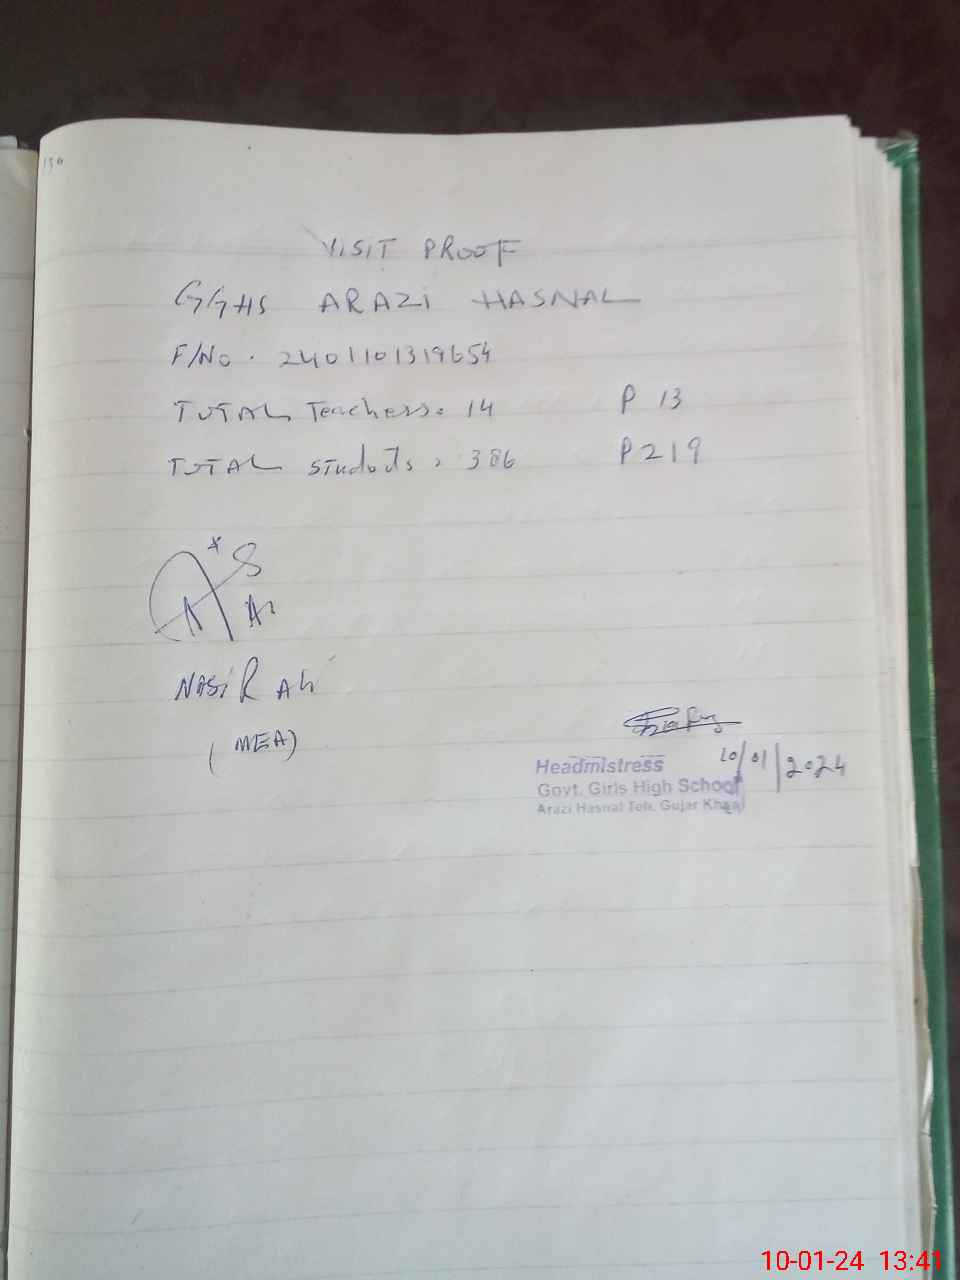 136
VISIT PROOF
GGHS ARAZI HASNAL
F/No. 2401101319654
TOTAL Teachers. 14 P 13
TOTAL students, 386 P 219
NASiR Ali
(MEA)
10/01/2024
Headmistress
Govt. Girls High School
Arazi Hasnal Teh. Gujar Khan
10-01-24 13:41